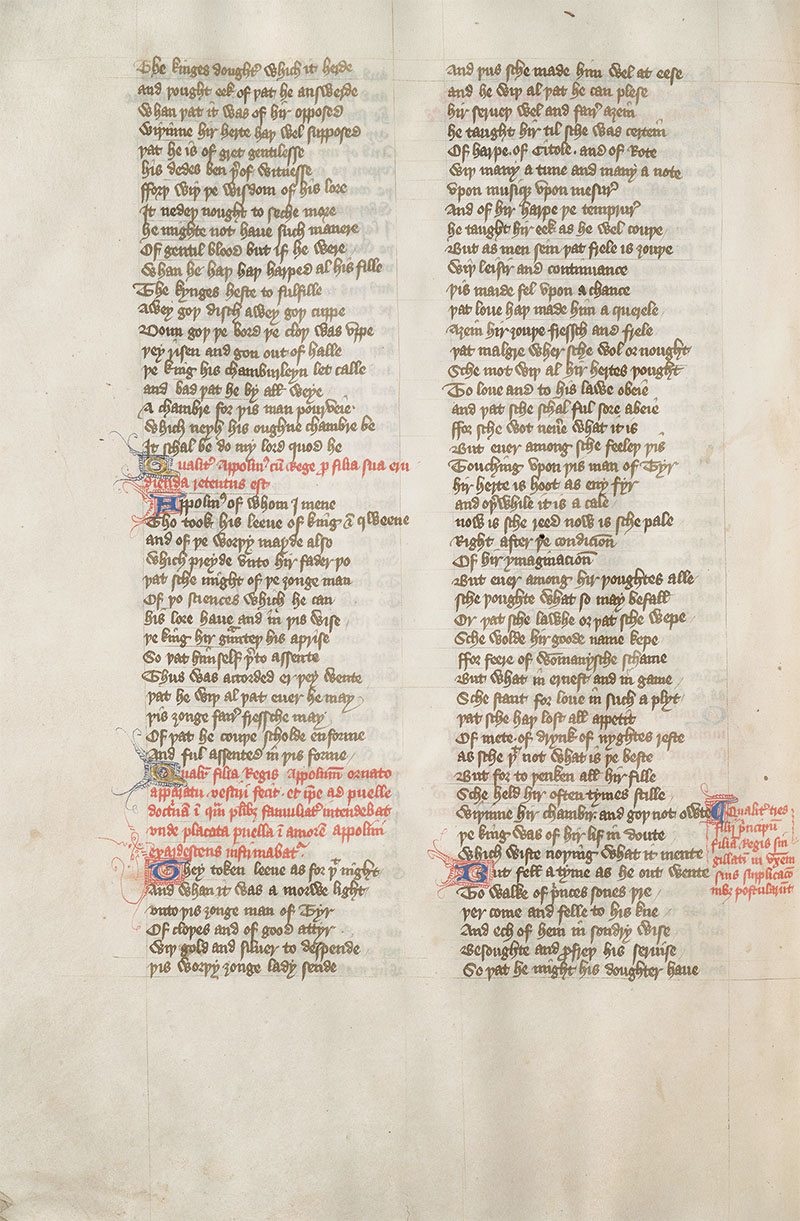 The kinges dought' which it herde
and þought eek of þat he answerde
Whan þat it was of hir opposed
Wiþinne hir herte haþ wel supposed
þat he is of gret gentilesse
his dedes ben þ'of witnesse
fforþ wiþ þe wisdom of his lore
It nedeþ nought to seche more
he mighte not haue such manere
Of gentil blood but if he were
Whan he haþ haþ harped al his fille
The kynges heste to fulfille
Awey goþ disch awey goþ cuppe
Doun goþ þe bord þe cloþ was vppe
þey risen and gon out of halle
þe king his chamburleyn let calle
and bad þat he by all weye
A chambre for þis man pourveie
Which neyh his oughne chambre be
It schal be do my lord quod he
Qualit' Appolin' cū Rege p filia sua eru
dienda retentus est
Appolin' of whom I mene
Tho took his leeve of king & qweene
and of þe worþy mayde also
Which preyde vnto hir fader þo
þat sche might of þe ȝonge man
Of þo sciences which he can
his lore haue and in þis wise
þe king hir g̃nteþ his aprise
So þat himself þ'to assente
Thus was acorded er þey wente
þat he wiþ al þat euer he may
þis ȝonge fair' fresshe may
Of þat he couþe scholde enforme
And ful assented in þis forme
Qualit' filia Regis Appolinum ornato
apparatu vestiri fecit et ip̃e ad puelle
doctrinā ī q̃m plib; famuliat' intendebat
vnde placata puella ī amorē appolini
exardescens infirmabat'
They token leeve as for þ' night
And whan it was a morwe light
vnto þis ȝonge man of Tyr
Of cloþes and of good attyr
Wiþ gold and siluer to despende
þis worþy ȝonge lady sende
And þus sche made him wel at eese
and he wiþ al þat he can plese
hir serueþ wel and fair' aȝein
he taught hir til sche was certein
Of harpe. of Citole. and of Rote
Wiþ many a tune and many a note
vpon musiqe vpon mesur'
And of hir harpe þe tempiur'
he taught hir eek as he wel couþe
But as men sein þat frele is ȝouþe
Wiþ leisir and continuance
þis maide fel vpon a chance
þat loue haþ made him a querele
Aȝein hir ȝouþe fressch and frele
þat malgre wher sche wol or nought
Sche mot wiþ al hir hertes þought
To loue and to his lawe obeie
and þat sche schal ful sore abeie
ffor sche wot neu'e what it is
But euer among sche feeleþ þis
Touching vpon þis man of Tyr
hir herte is hoot as eny fyr
and oþ'while it is a cale
now is sche reed now is sche pale
Right after þe condicion
Of hir ymaginacion
But euer among hir þoughtes alle
sche þoughte what so may befall
Or þat sche lawhe or þat sche wepe
Sche wolde hir goode name kepe
ffor feere of wommanysche schame
But what in ernest and in game
Sche stant for loue in such a plyt
þat sche haþ lost all appetit
Of mete. of drynk of nyghtes reste
as sche þ' not what is þe beste
But for to þenken all hir fille
Sche held hir often tymes stille
Wiþinne hir chambir. and goþ not owte
þe king was of hir lif in doute
Which wiste noþing what it mente
But fell a tyme as he out wente
To walke of p'nces sones þre
þer come and felle to his kne
And ech of hem in sondry wise
Besoughte and p'freþ his seruise
So þat he might his doughter haue
Qualit' tres
filij pricipū
filia Regis sin
gillati in vxorem
suis supplicacō
nib; postularūt